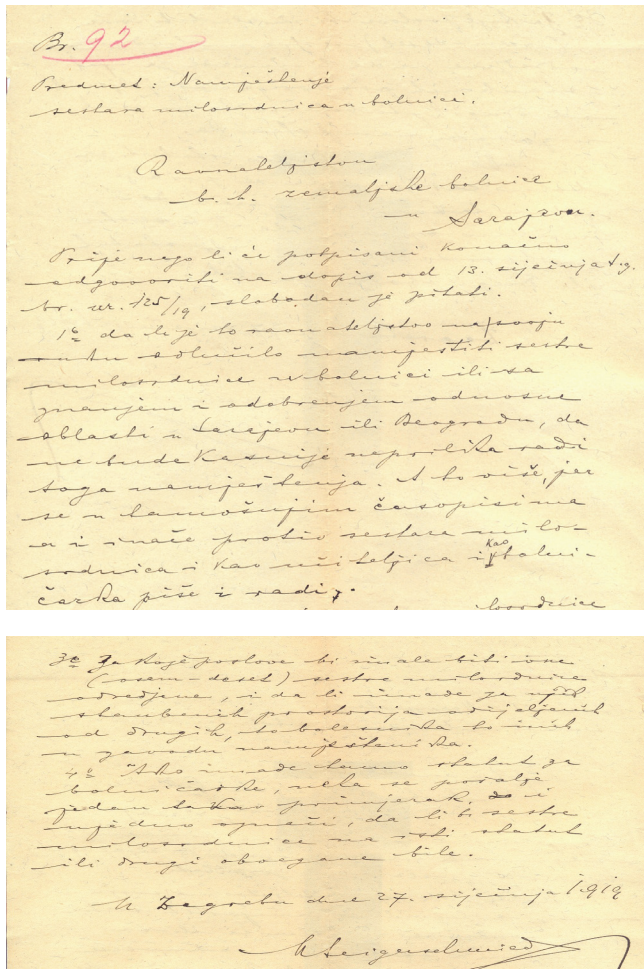 Br. 92
Predmet: Namještenje
sestara milosrdnica u bolnici.
Ravnateljstvu
b. h. zemaljske bolnice
u
Sarajevu.
Prije nego li će potpisani konačno
odgovoriti na dopis od 13. siječnja t.g.
br. ur. 125/19, slobodan je pitati.
1o da li je to ravnateljstvo na svoju
ruku odlučilo namjestiti sestre
milosrdnice u bolnici ili sa
znanjem i odobrenjem odnosne
oblasti u Sarajevu ili Beogradu, da
ne bude kasnije neprilika radi
toga namještenja. A to više, jer
se u tamošnjim časopisima
a i inače protiv sestara milo-
srdnica i kao učiteljica i kao bolni-
čarka piše i radi.
3o Za koje poslove bi imale biti one
(osem-deset) sestre milosrdnice
odredjene, i da li imade za njih
stanbenih prostorija odijeljenih
od drugih, to bolesnika to inih
u zavodu namještenika.
4o Ako imade tamo statut za
bolničarke, neka se pošalje
jedan takav primjerak i
ujedno označi, da li bi sestre
milosrdnice na isti statut
ili drugi obvezane bile.
U Zagrebu dne 27. siječnja 1919